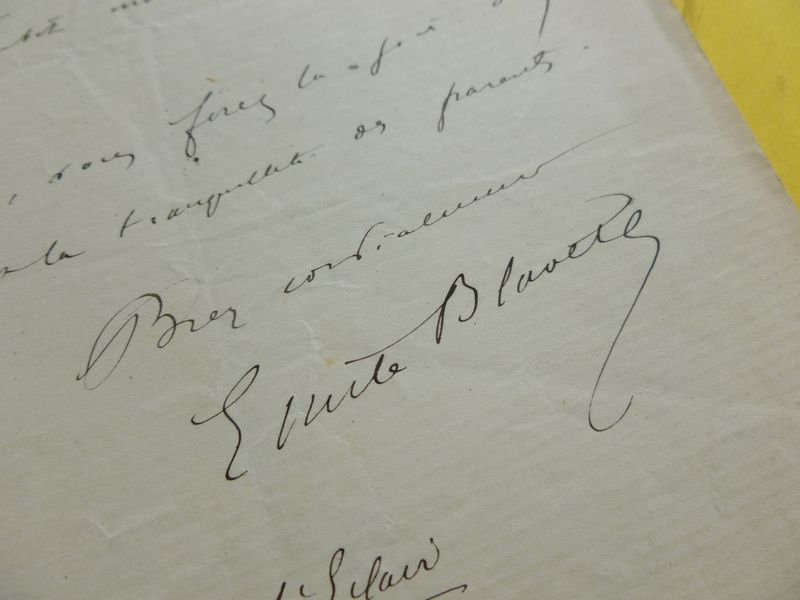 vous ferez la joie
la tranquillité des parents.
Bien cordialement
Emile Blavet
l'Eclair